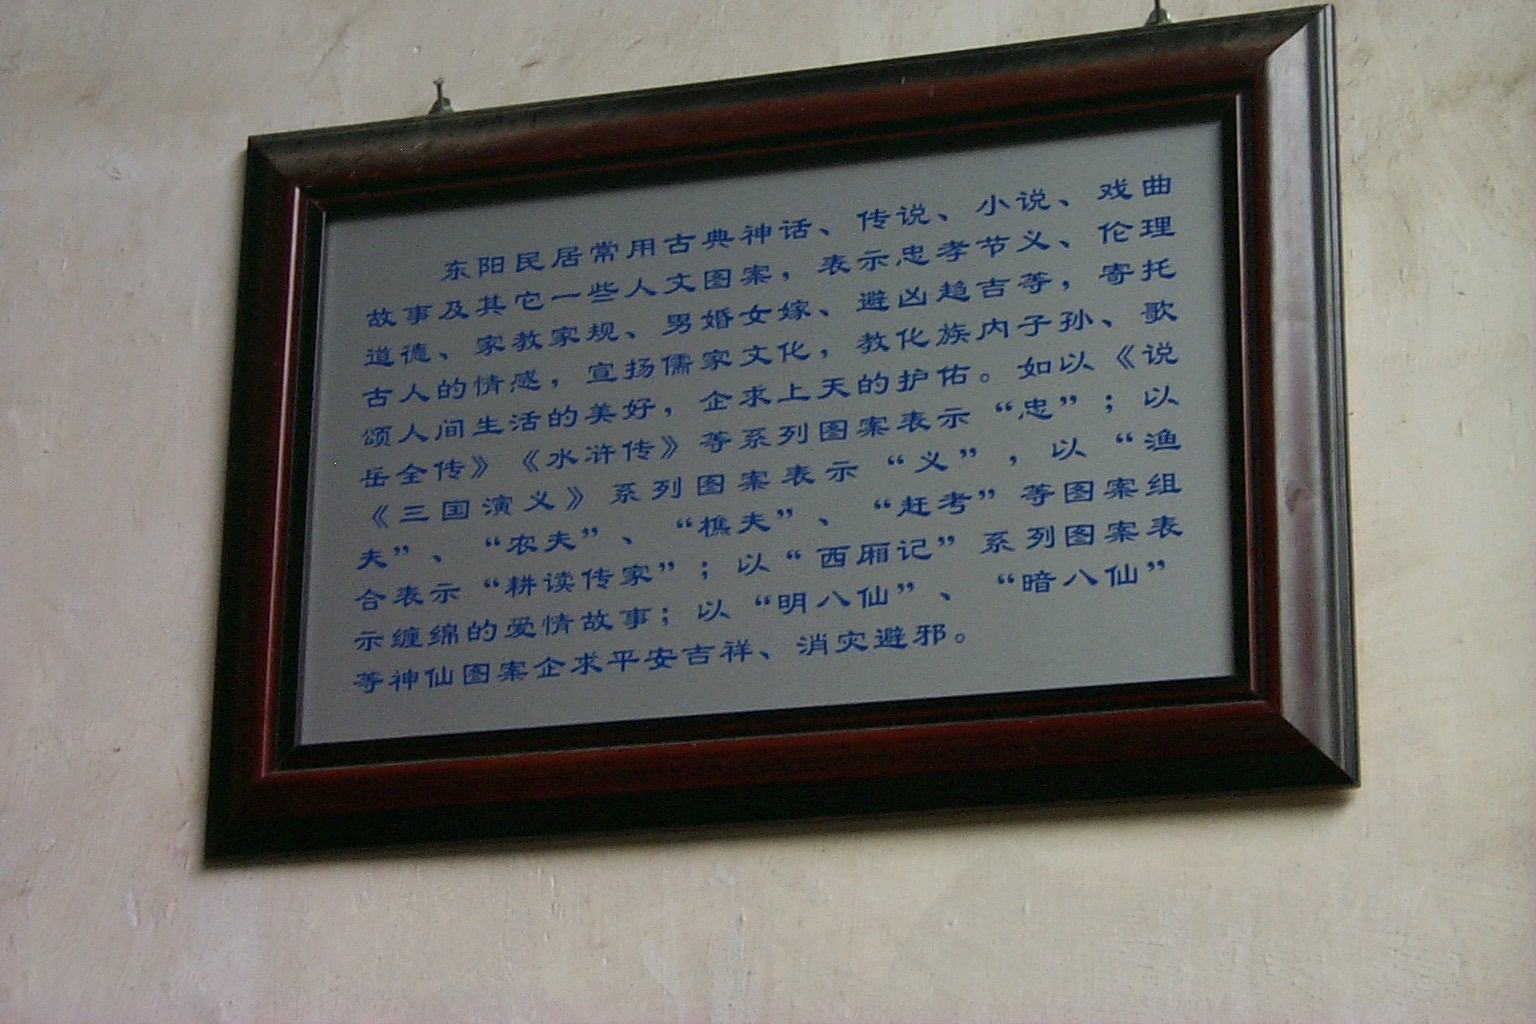 东阳民居常用古典神话、传说、小说、戏曲
故事及其它一些人文图案，表示忠孝节义、伦理
道德、家教家规、男婚女嫁、避凶趋吉等，寄托
古人的情感，宣扬儒家文化，教化族内子孙、歌
颂人间生活的美好，企求上天的护佑。如以《说
岳全传》《水浒传》等系列图案表示“忠”；以
《三国演义》系列图案表示“义”，以“渔
夫”、“农夫”、“樵夫”、“赶考”等图案组
合表示“耕读传家”；以“西厢记”系列图案表
示缠绵的爱情故事；以“明八仙”、“暗八仙”
等神仙图案企求平安吉祥、消灾避邪。